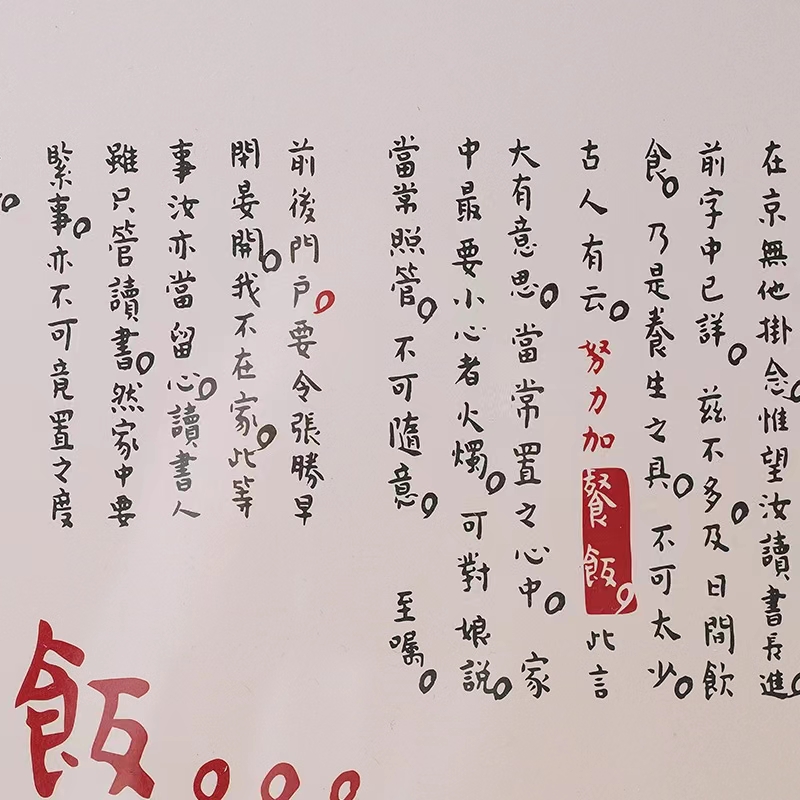 在京無他掛念惟望汝讀書長進
前字中已詳。茲不多及。日間飲
食。乃是養生之具。不可太少。
古人有云。努力加餐飯。此言
大有意思。當常置之心中。家
中最要小心者火燭。可對娘說。
當常照管。不可隨意。至囑。
前後門戶。要令張勝早
閉晏開。我不在家。此等
事汝亦當留心。讀書人
雖只管讀書。然家中要
緊事。亦不可竟置之度
飯。。。